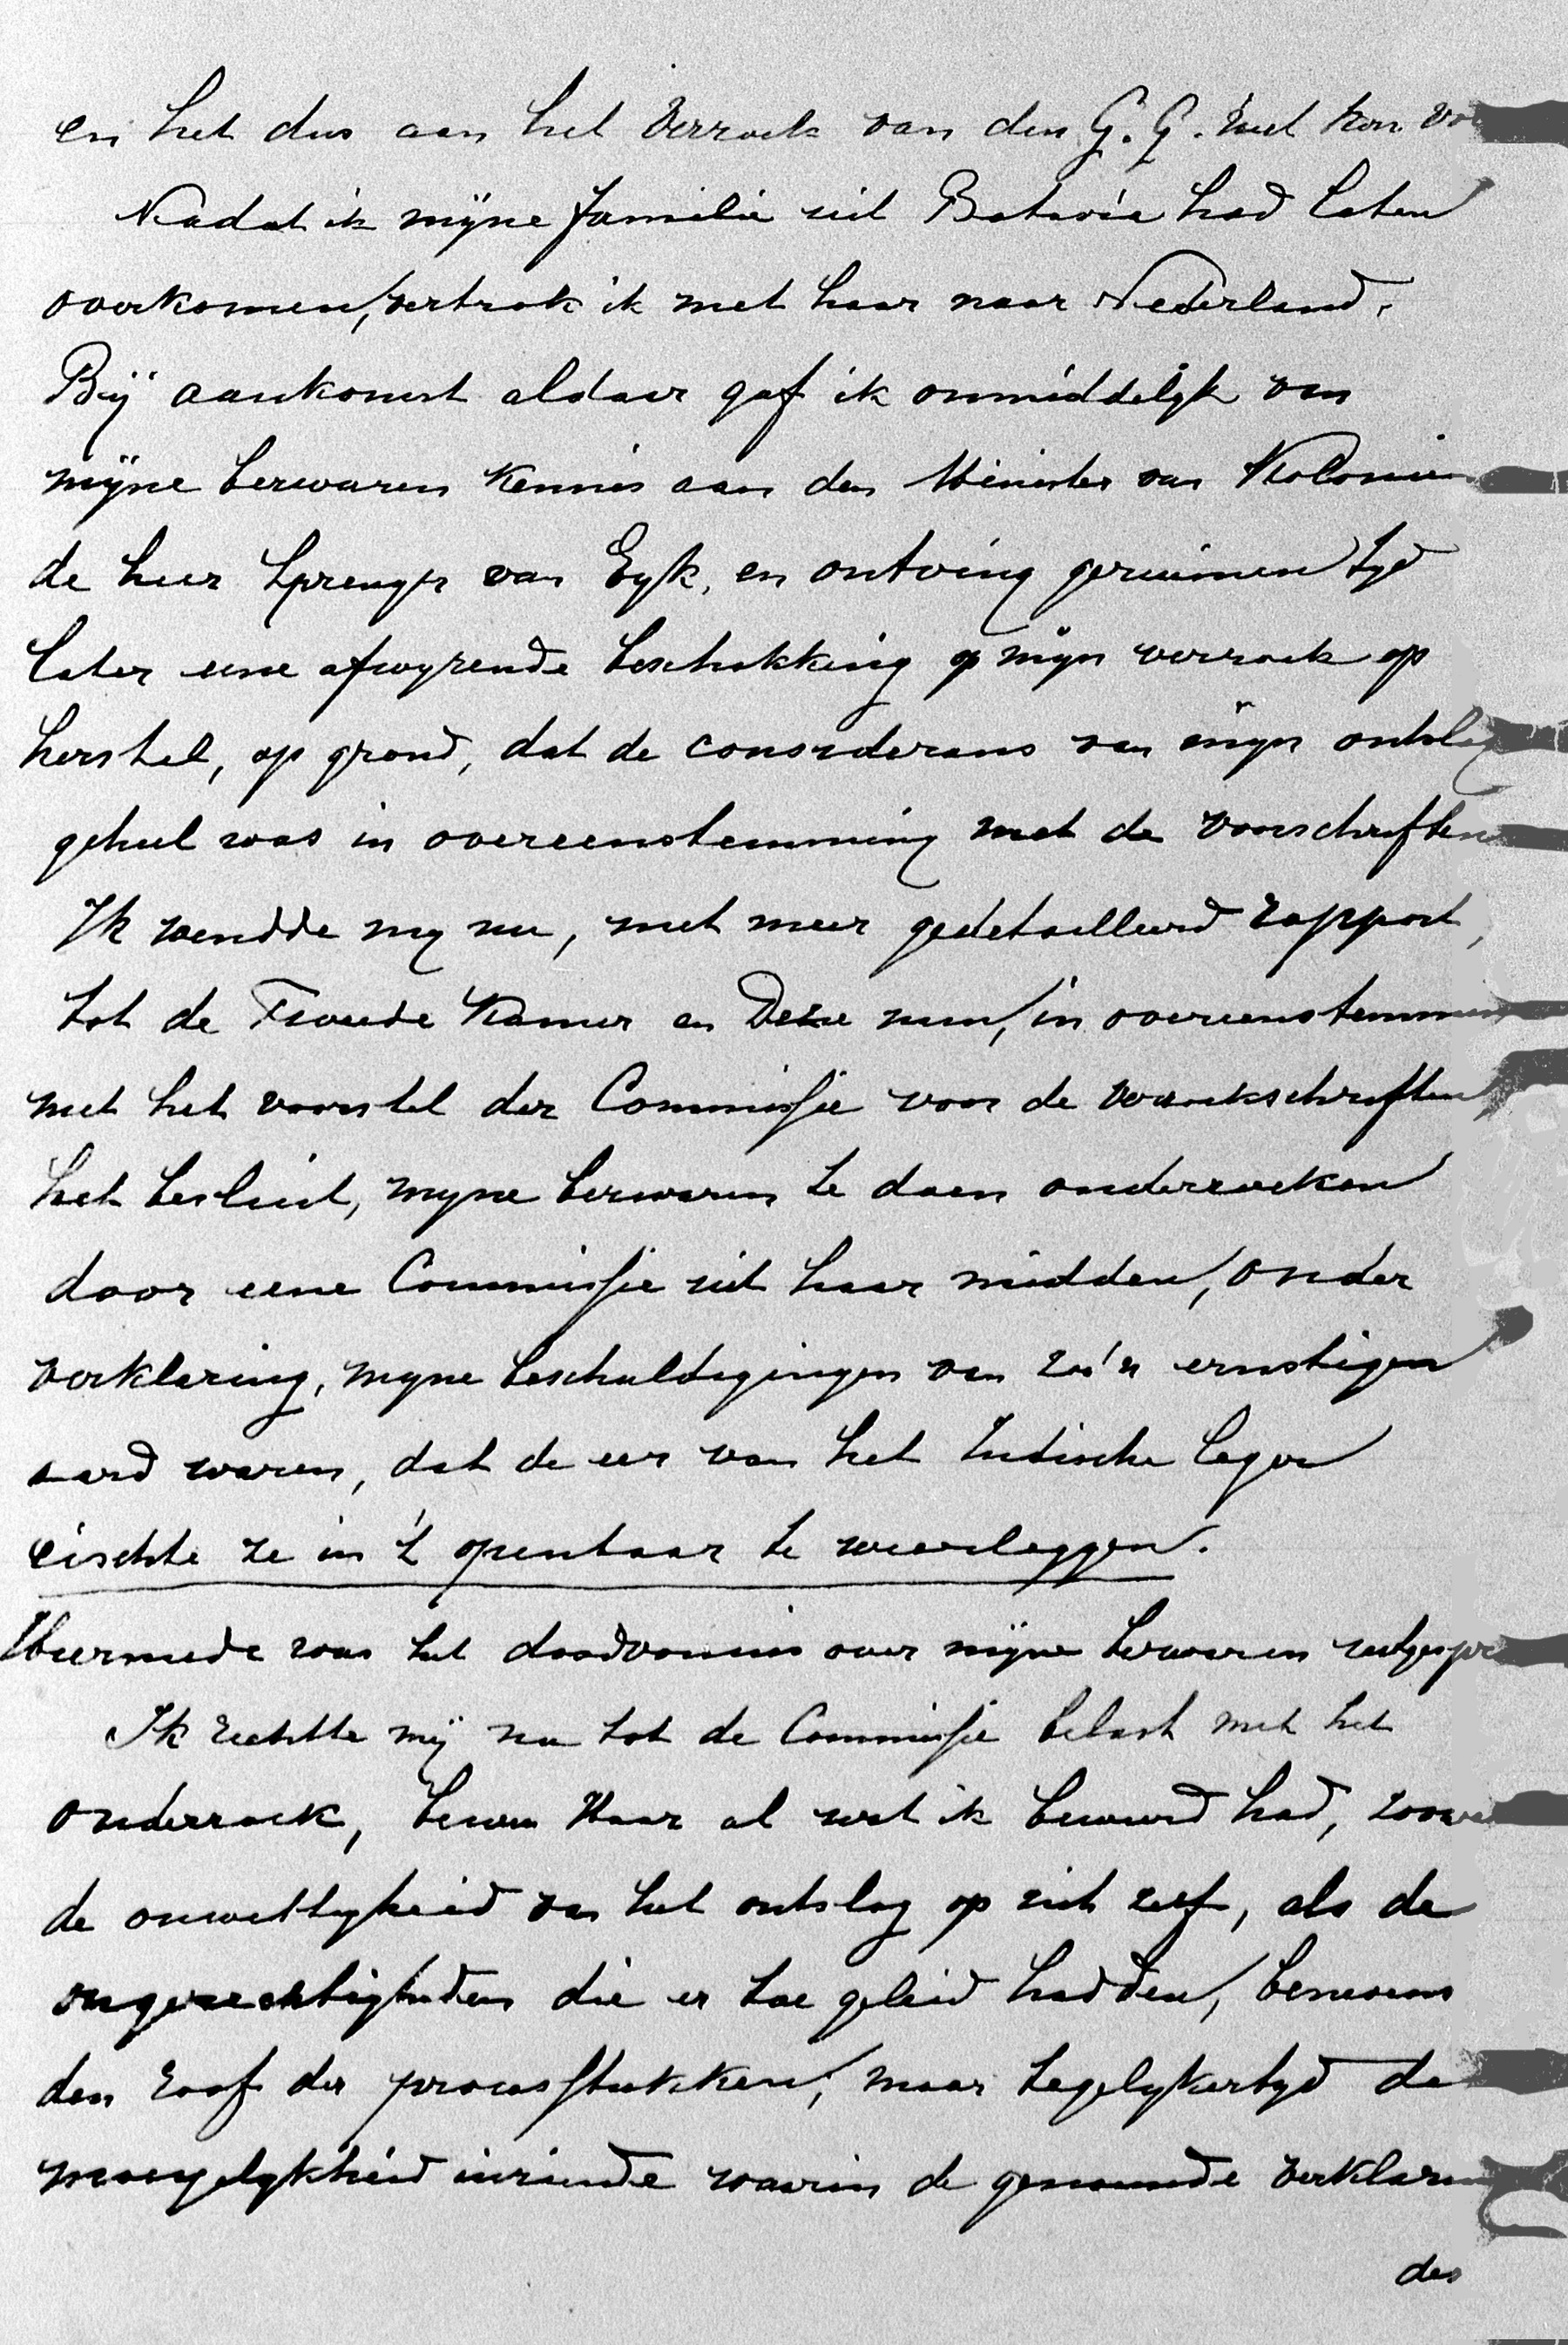 en het dus aan het verzoek van den G.G. niet kon
Nadat ik mijne familie uit Batavia had laten
overkomen, vertrok ik met haar naar Nederland.
Bij aankomst aldaar gaf ik onmiddelijk van
mijne bezwaren kennis aan den Minister van Koloniën
de heer Sprenger van Eyk, en ontving geruimen tyd
later eene afwyzende beschikking op mijn verzoek op
herstel, op grond, dat de considerans van mijn ontslag
geheel was in overeenstemming met de voorschriften
Ik wendde my nu, met meer gedetailleerd rapport,
tot de Tweede Kamer en Deze nam, in overeenstemming
met het voorstel der Commissie voor de verzoekschriften
het besluit, myne bezwaren te doen onderzoeken
door eene Commissie uit haar midden, onder
verklaring, myne beschuldigingen van zoo'n ernstigen
aard waren, dat de eer van het Indische leger
eischte ze in 't openbaar te weerleggen.
Hiermede was het doodvonnis over mijne bezwaren uitgespro
Ik richtte mij nu tot de Commissie belast met het
onderzoek, bewees Haar al wat ik beweerd had, zoowel
de onwettigheid van het ontslag op zich zelf, als de
ongerechtigheden die er toe geleid hadden, benevens
den roof der processtukken, maar tegelykertyd de
moeyelykheid inziende waarin de genoemde verklaring
des